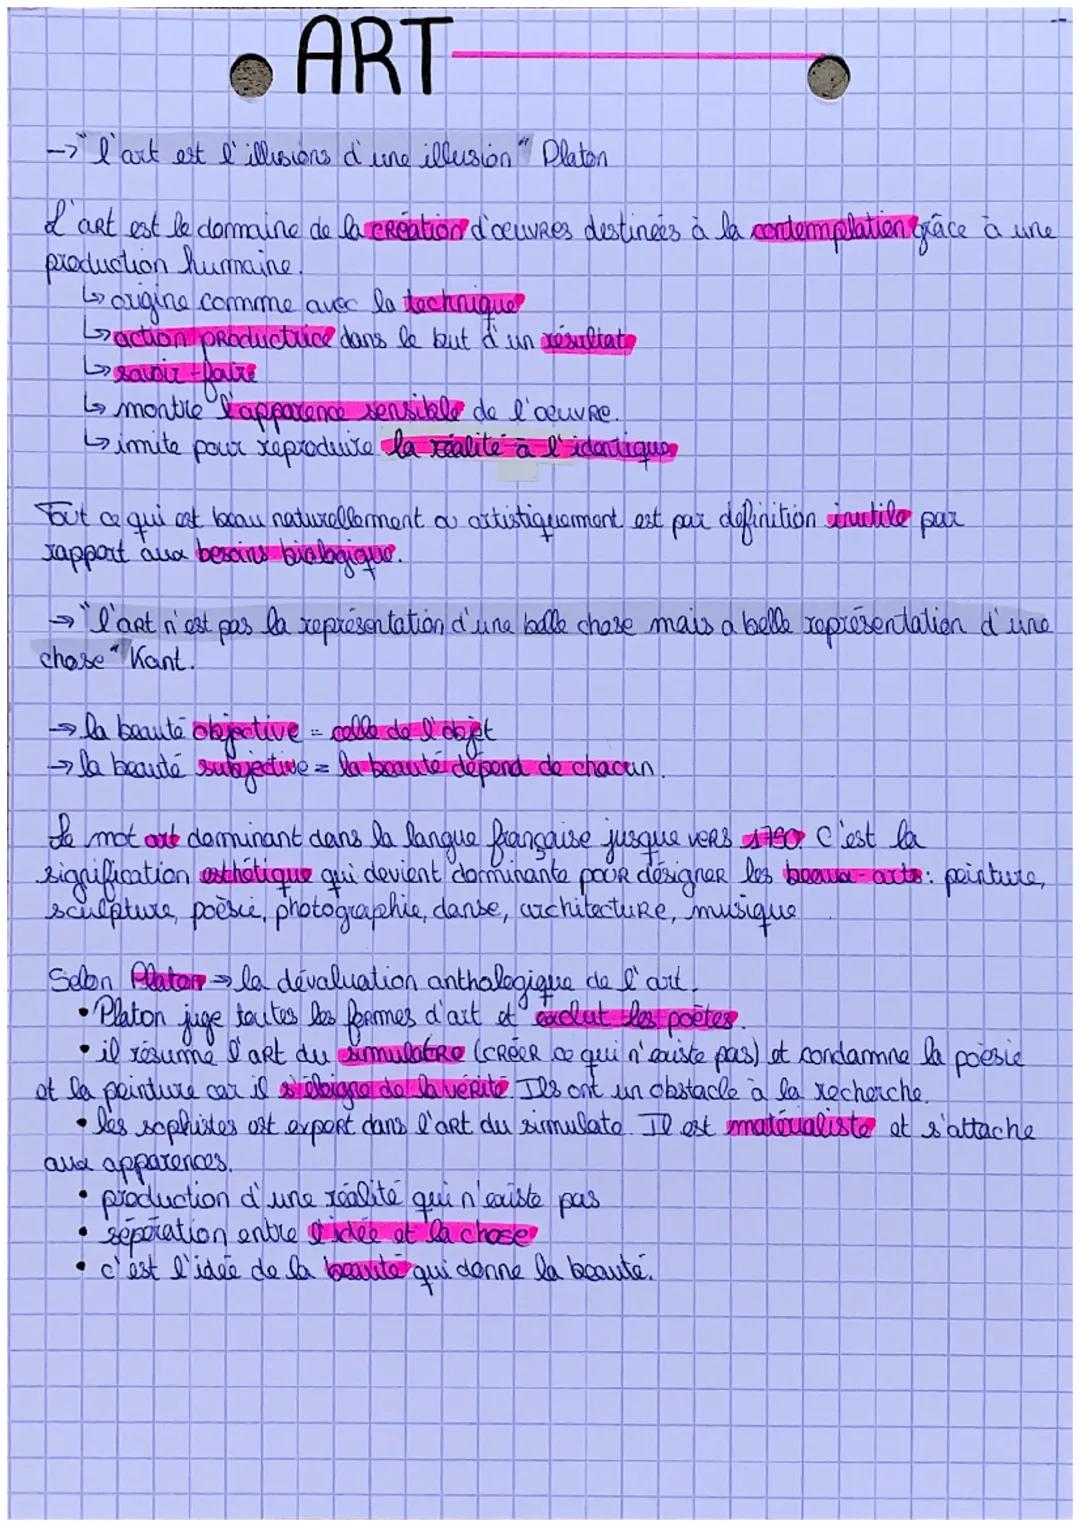 ART
-> "l'art est l'illusions d'une illusion" Platon
L'art est le domaine de la création d'œuvres destinées à la contemplation grâce à une
production humaine.
↳ origine comme avec la technique
↳ action productrice dans le but d'un résultat
↳ savoir-faire
↳ montre l'apparence sensible de l'œuvre.
↳ imite pour reproduire la réalité à l'identique
Tout ce qui est beau naturellement ou artistiquement est par définition inutile par
rapport aux besoins biologique.
-> "l'art n'est pas la représentation d'une belle chose mais a belle représentation d'une
chose" Kant.
-> la beauté objective = celle de l'objet
-> la beauté subjective = la beauté dépend de chacun.
Le mot art dominant dans la langue française jusque vers 1750 C'est la
signification esthétique qui devient dominante pour désigner les beaux-arts: peinture,
sculpture, poèsie, photographie, danse, architecture, musique
Selon Platon -> la dévaluation anthologique de l'art.
• Platon juge toutes les formes d'art et exclut les poètes.
• il résume l'art du simulatre (créer ce qui n'existe pas) et condamne la poèsie
et la peinture car il s'éloigne de la vérité. Ils ont un obstacle à la recherche.
• les sophistes est expert dans l'art du simulate. Il est matérialiste et s'attache
aux apparences.
• production d'une réalité qui n'existe pas
• séparation entre l'idée et la chose
• c'est l'idée de la beauté qui donne la beauté.